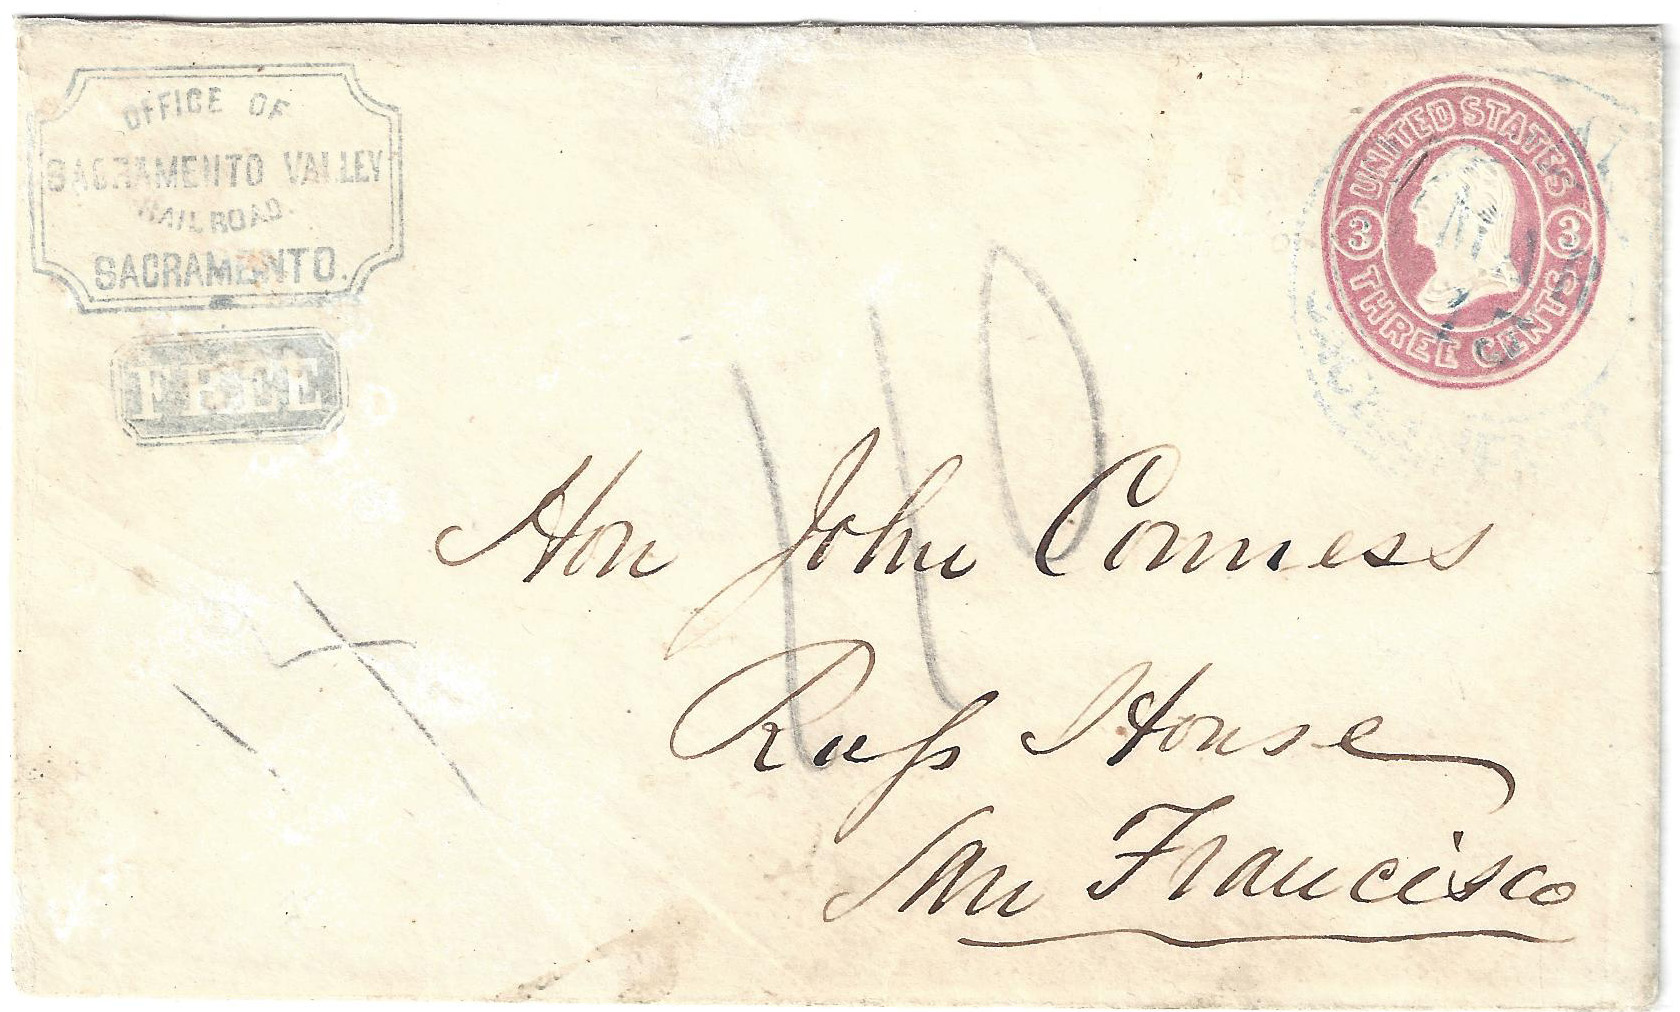 OFFICE OF
SACRAMENTO VALLEY
RAILROAD.
SACRAMENTO.
FREE
UNITED STATES
3 3
THREE CENTS
Hon John Conness
Russ House
San Francisco